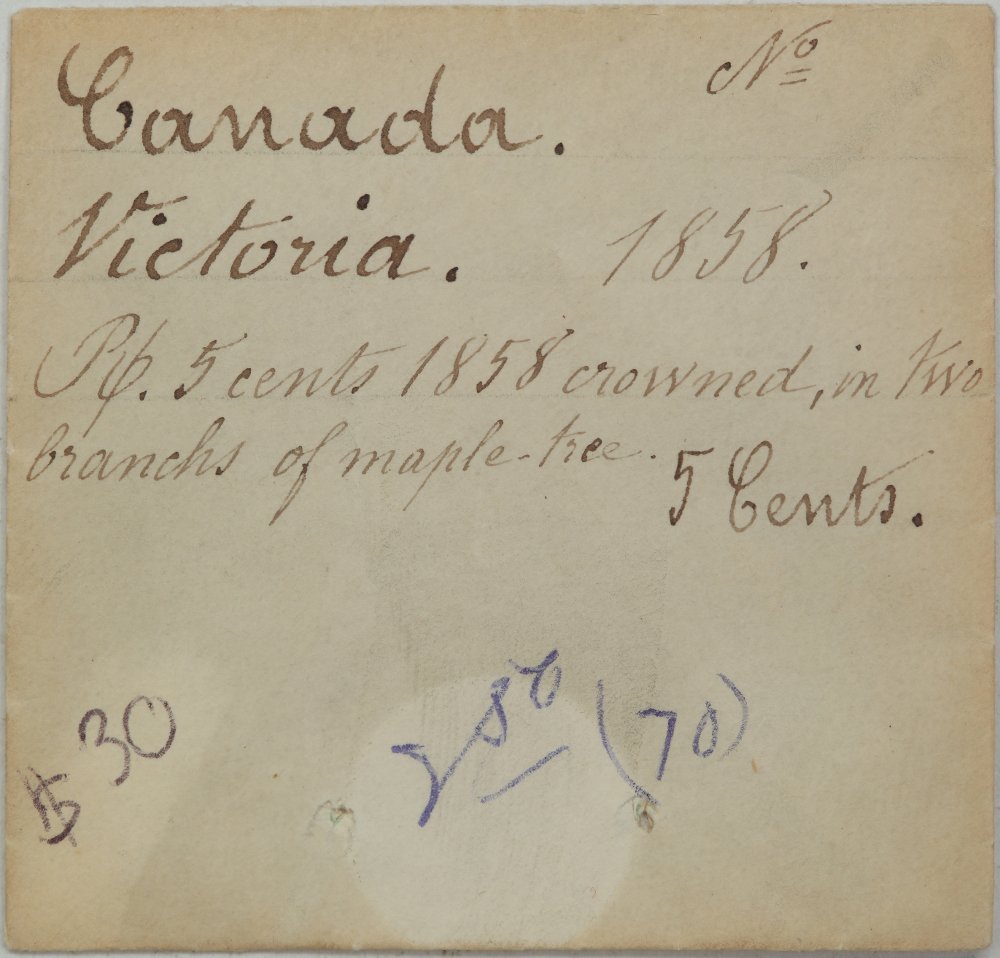 Canada. No
Victoria. 1858.
R/. 5 cents 1858 crowned, in two
branchs of maple-tree.
5 Cents.
30
80 (70)